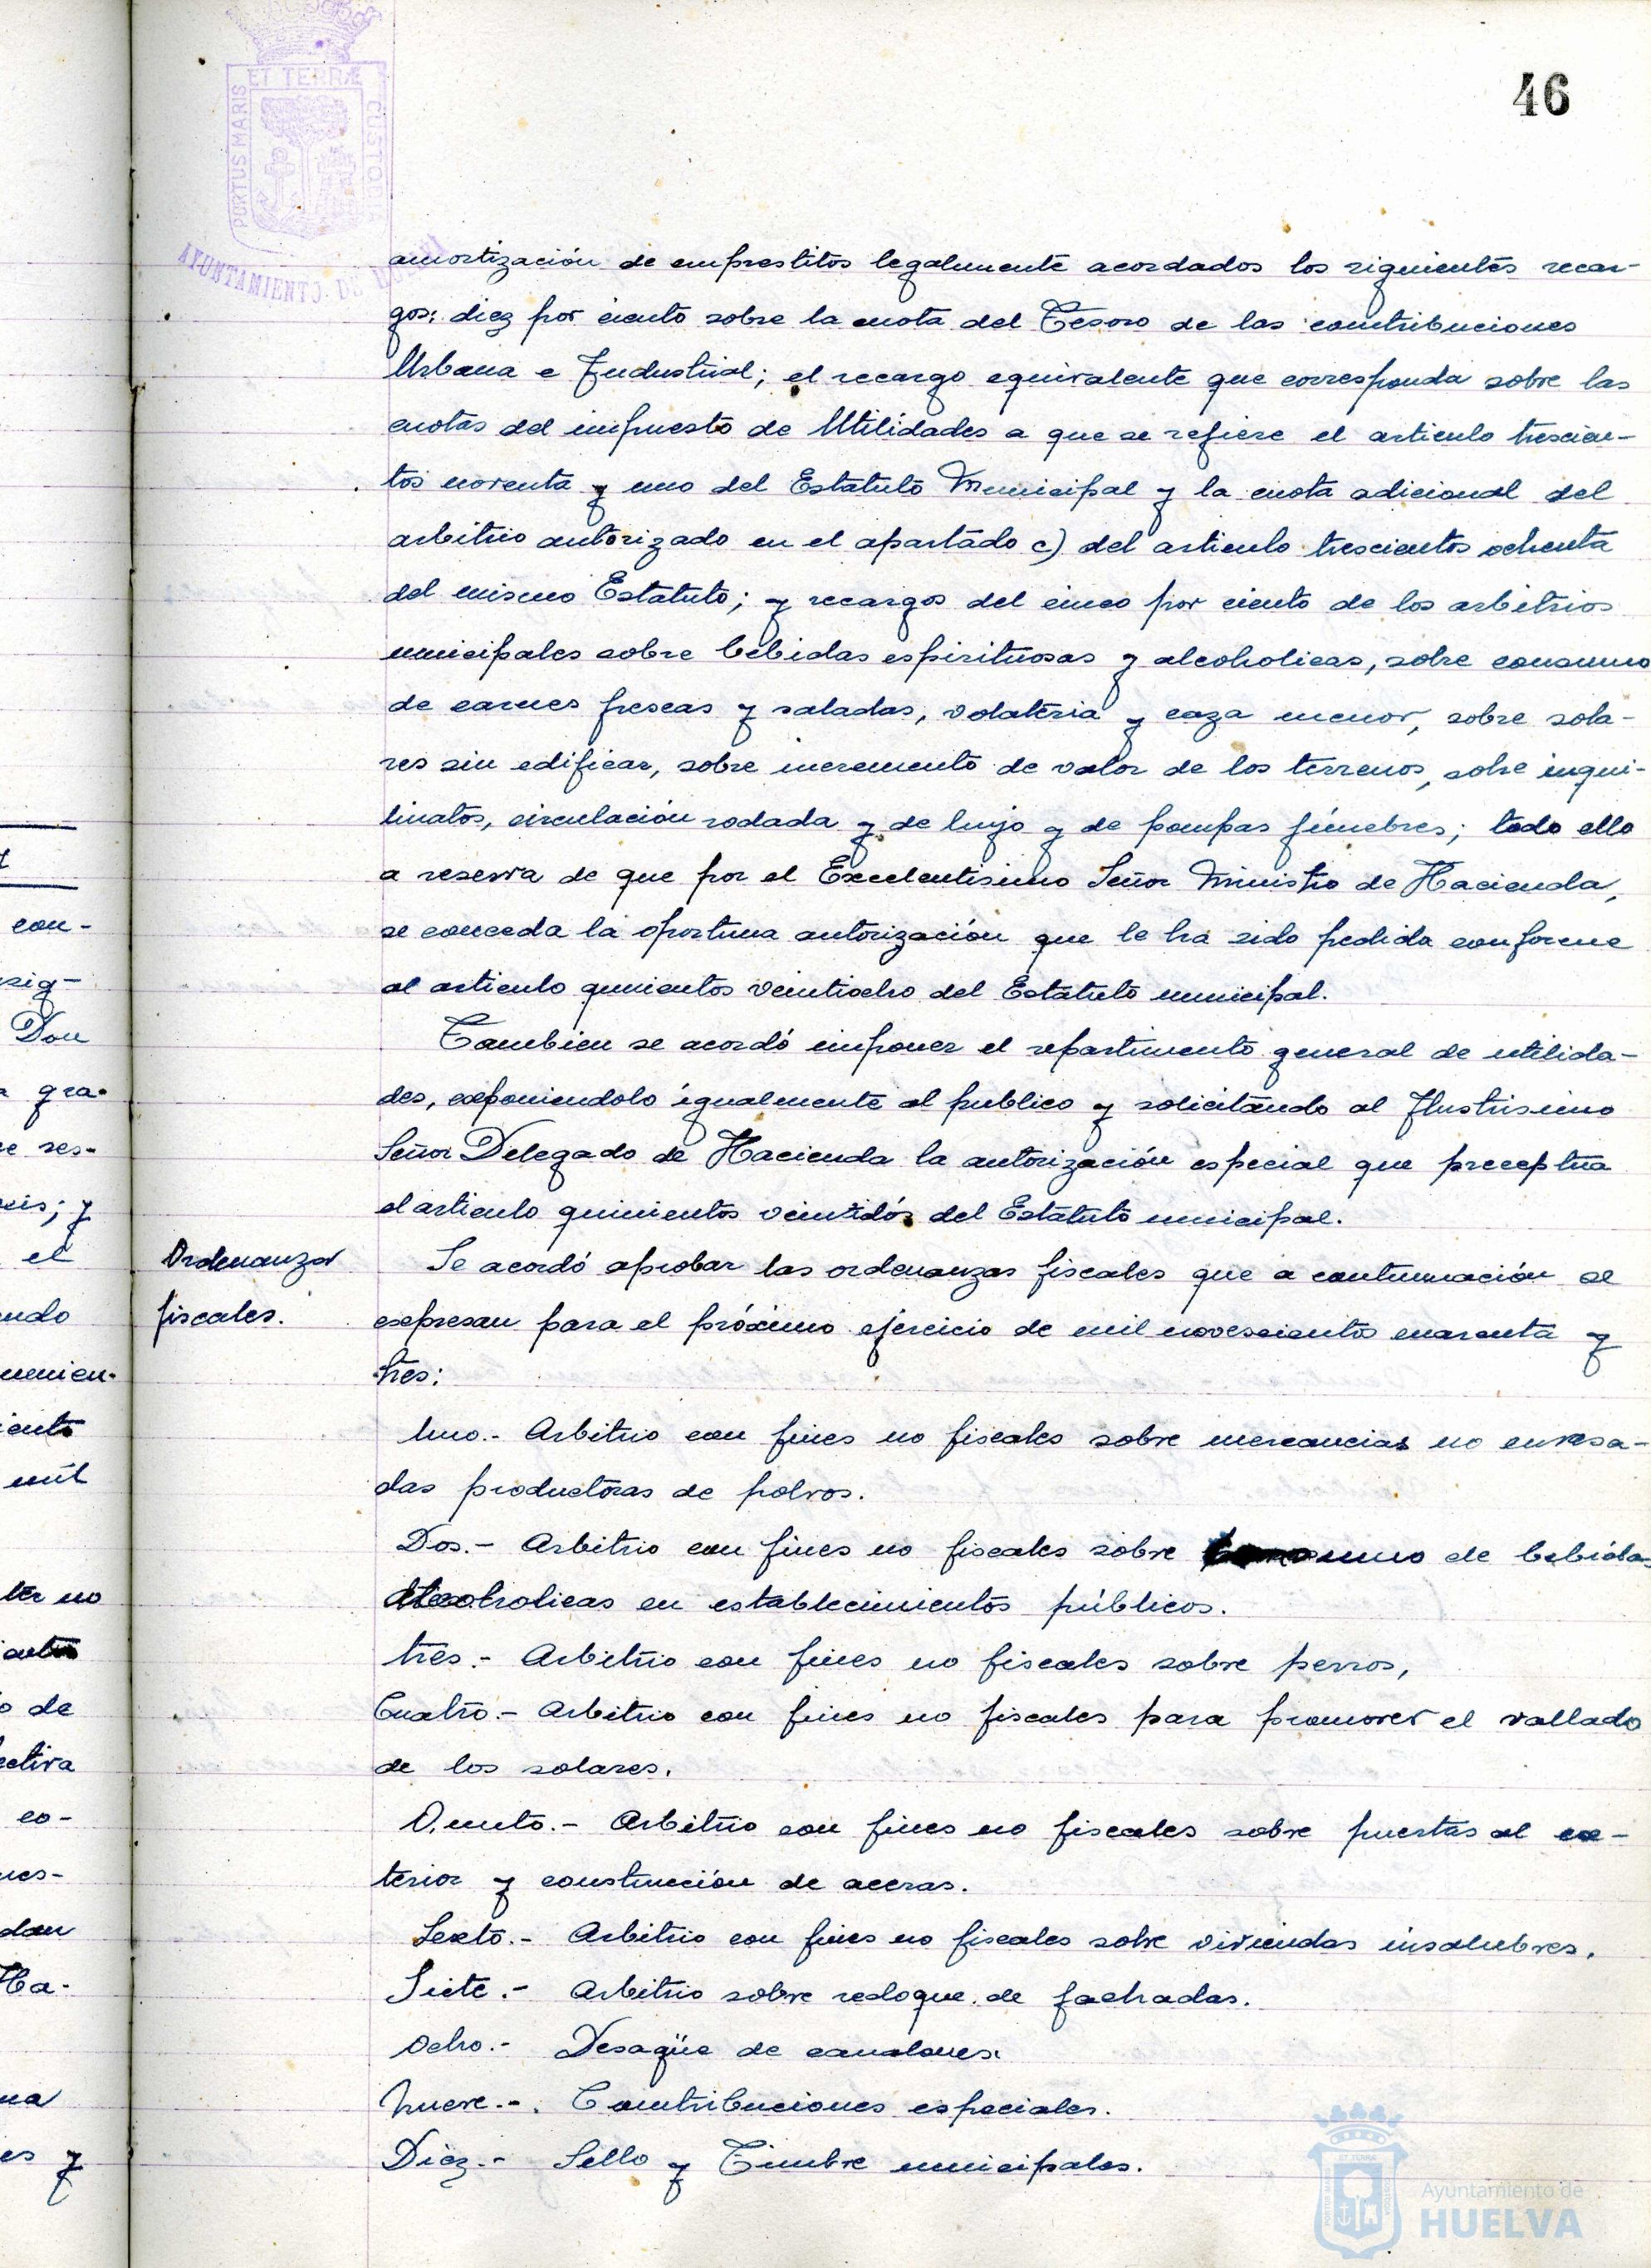 46
PORTUS MARIS ET TERRÆ CUSTODIA
AYUNTAMIENTO DE HUELVA
amortización de emprestitos legalmente acordados los siguientes recar-
gos: diez por ciento sobre la cuota del Tesoro de las contribuciones
Urbana e Industrial; el recargo equivalente que corresponda sobre las
cuotas del impuesto de Utilidades a que se refiere el articulo trescien-
tos noventa y uno del Estatuto Municipal y la cuota adicional del
arbitrio autorizado en el apartado c) del articulo trescientos ochenta
del mismo Estatuto; y recargos del cinco por ciento de los arbitrios
municipales sobre bebidas espirituosas y alcoholicas, sobre consumo
de carnes frescas y saladas, volateria y caza menor, sobre sola-
res sin edificar, sobre incremento de valor de los terrenos, sobre inqui-
linatos, circulación rodada y de lujo y de pompas fúnebres; todo ello
a reserva de que por el Excelentisimo Señor Ministro de Hacienda,
se conceda la oportuna autorización que le ha sido pedida conforme
al articulo quinientos veintiocho del Estatuto municipal.
Tambien se acordó imponer el repartimento general de utilida-
des, exponiendolo igualmente al publico y solicitando al Ilustrisimo
Señor Delegado de Hacienda la autorización especial que preceptúa
el articulo quinientos veintidós del Estatuto municipal.
Ordenanzas
fiscales.
Se acordó aprobar las ordenanzas fiscales que a continuación se
expresan para el próximo ejercicio de mil novescientos cuarenta y
tres:
Uno.- Arbitrio con fines no fiscales sobre mercancias no envasa-
das productoras de polvos.
Dos.- Arbitrio con fines no fiscales sobre consumo de bebidas
Alcoholicas en establecimientos públicos.
tres.- Arbitrio con fines no fiscales sobre perros,
Cuatro.- Arbitrio con fines no fiscales para promover el vallado
de los solares.
Quinto.- Arbitrio con fines no fiscales sobre puertas al ex-
terior y construcción de aceras.
Sexto.- Arbitrio con fines no fiscales sobre viviendas insalubres.
Siete.- Arbitrio sobre redoque de fachadas.
Ocho.- Desagüe de canalones.
Nueve.-. Contribuciones especiales.
Diez.- Sello y Timbre municipales.
con-
sig-
Don
gra-
res-
; y
el
mil
no
o de
co-
y
Ayuntamiento de
HUELVA